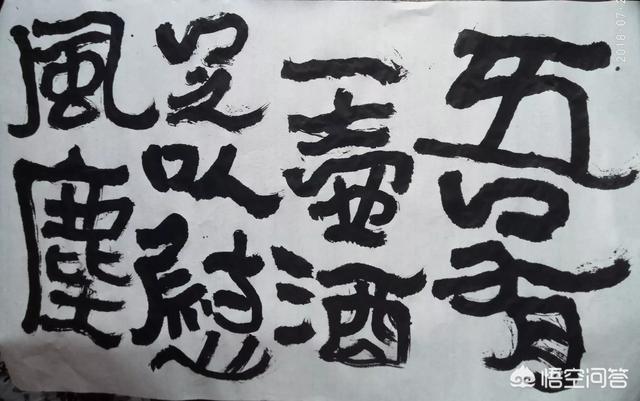 吾有
一壺酒
足以慰
風塵
2018-07-2
悟空问答